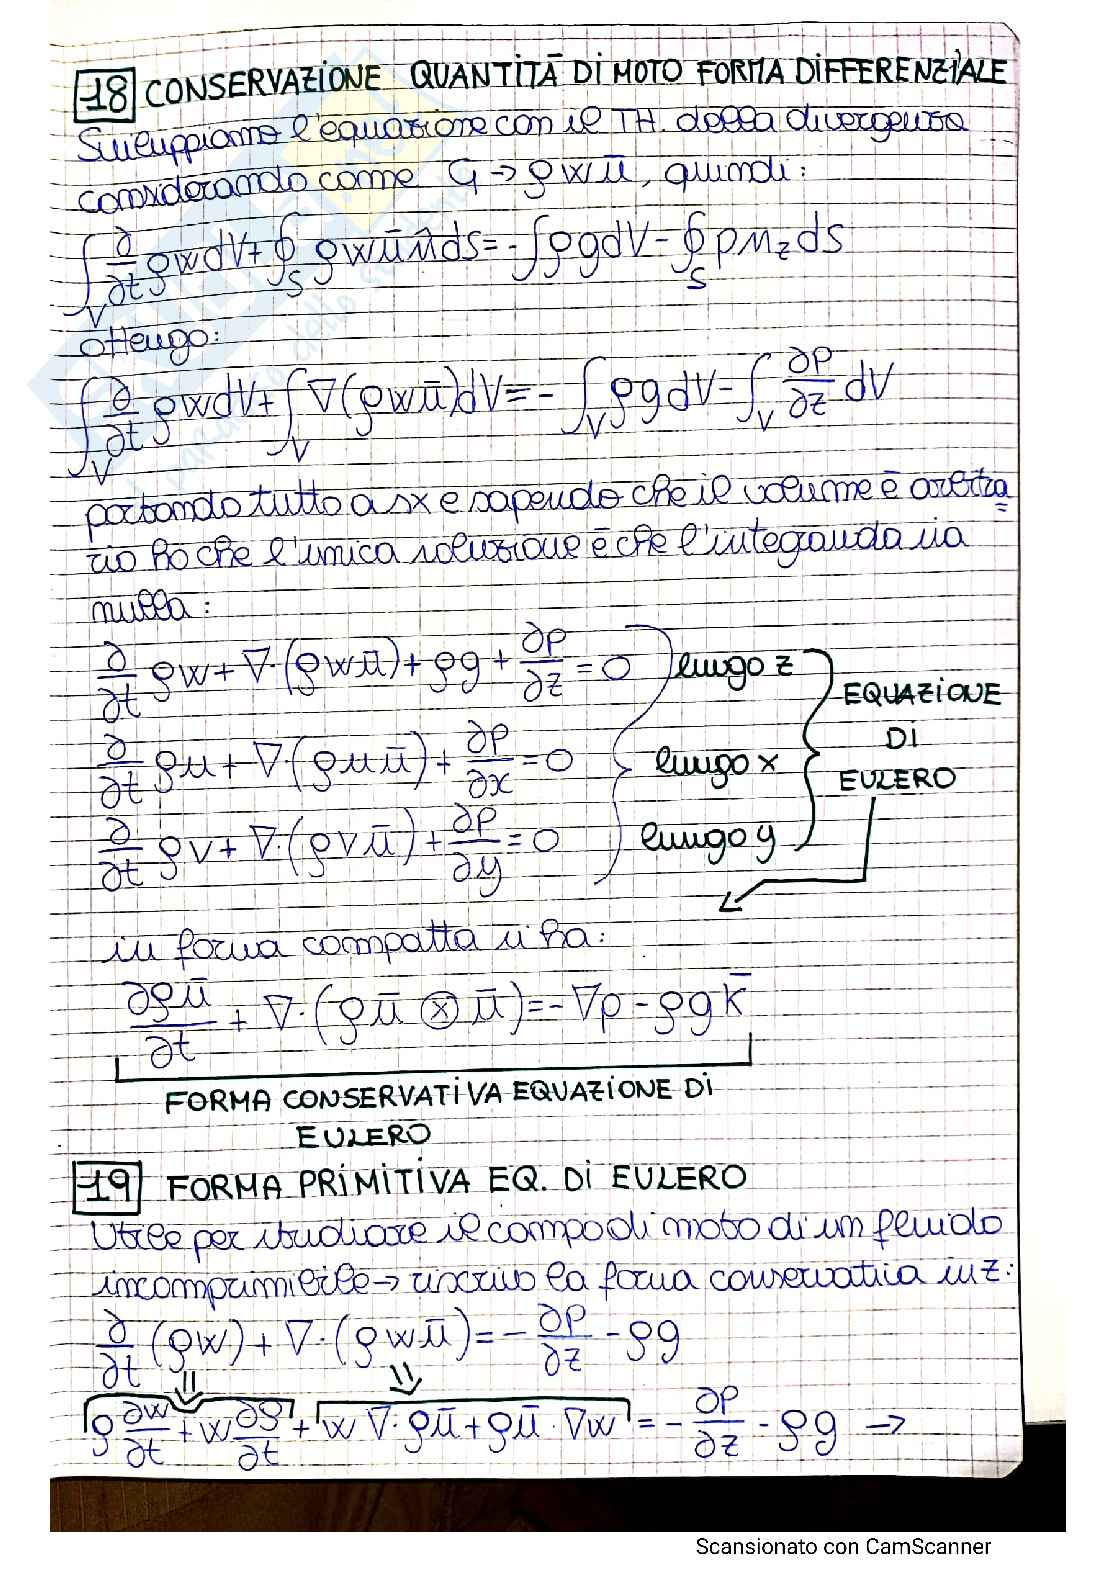 18 CONSERVAZIONE QUANTITÀ DI MOTO FORMA DIFFERENZIALE
Sviluppiamo l'equazione con il TH. della divergenza
considerando come G → ρwū, quindi:
∫_V ∂/∂t ρw dV + ∮_S ρwū n̂ ds = - ∫ρg dV - ∮_S p n_z ds
ottengo:
∫_V ∂/∂t ρw dV + ∫_V ∇(ρwū)dV = - ∫_V ρg dV - ∫_V ∂p/∂z dV
portando tutto a sx e sapendo che il volume è arbitra
rio ho che l'unica soluzione è che l'integranda sia
nulla:
∂/∂t ρw + ∇·(ρwū) + ρg + ∂p/∂z = 0 lungo z
EQUAZIONE
DI
EULERO
∂/∂t ρu + ∇·(ρuū) + ∂p/∂x = 0 lungo x
∂/∂t ρv + ∇·(ρvū) + ∂p/∂y = 0 lungo y
in forma compatta si ha:
∂ρū/∂t + ∇·(ρū ⊗ ū) = -∇p - ρg k̄
FORMA CONSERVATIVA EQUAZIONE DI
EULERO
19 FORMA PRIMITIVA EQ. DI EULERO
Utile per studiare il campo di moto di un fluido
incomprimibile → riscrivo la forma conservativa in z:
∂/∂t (ρw) + ∇·(ρwū) = - ∂p/∂z - ρg
ρ ∂w/∂t + w ∂ρ/∂t + w ∇·ρū + ρū·∇w = - ∂p/∂z - ρg →
Scansionato con CamScanner